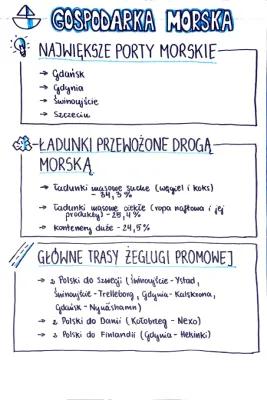 GOSPODARKA MORSKA
NAJWIĘKSZE PORTY MORSKIE
→ Gdańsk
→ Gdynia
→ Świnoujście
→ Szczecin
ŁADUNKI PRZEWOŻONE DROGĄ
MORSKĄ
→ Ładunki masowe suche (węgiel i koks)
- 34,3%
→ Ładunki masowe ciekłe (ropa naftowa i jej
produkty) - 25,4%
→ kontenery duże - 24,5%
GŁÓWNE TRASY ŻEGLUGI PROMOWEJ
→ z Polski do Szwecji (Świnoujście - Ystad,
Świnoujście - Trelleborg, Gdynia - Kalskrona,
Gdańsk - Nynäshamn)
→ z Polski do Danii (Kołobrzeg - Nexo)
→ z Polski do Finlandii (Gdynia - Helsinki)